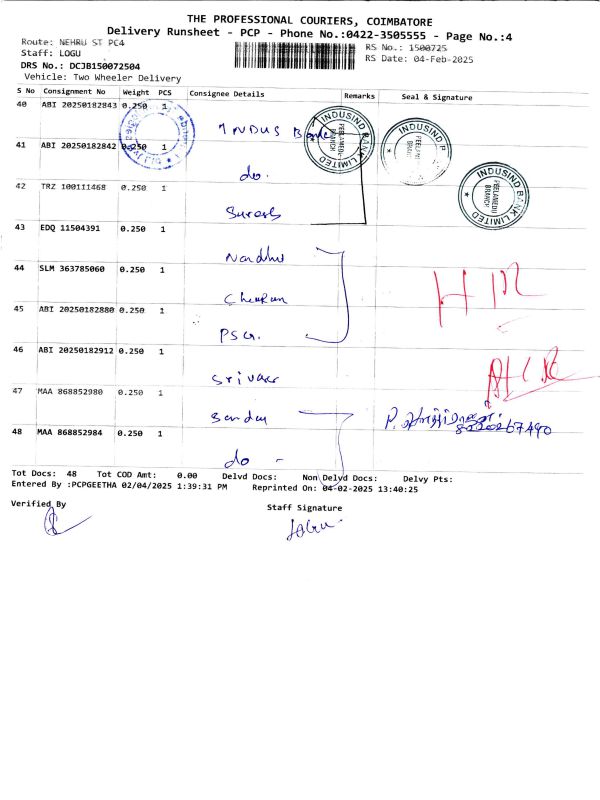 THE PROFESSIONAL COURIERS, COIMBATORE
Delivery Runsheet - PCP - Phone No.:0422-3505555 - Page No.:4
Route: NEHRU ST PC4
RS No.: 1500725
Staff: LOGU
RS Date: 04-Feb-2025
DRS No.: DCJB150072504
Vehicle: Two Wheeler Delivery
S No Consignment No Weight PCS Consignee Details Remarks Seal & Signature
40 ABI 20250182843 0.250 1
INDUS Bank
INDUSIND BANK LIMITED
PEELAMEDU BRANCH
41 ABI 20250182842 0.250 1
do.
INDUSIND BANK LIMITED
PEELAMEDU BRANCH
42 TRZ 100111468 0.250 1
Suresh
43 EDQ 11504391 0.250 1
44 SLM 363785060 0.250 1
45 ABI 20250182880 0.250 1
PSG.
46 ABI 20250182912 0.250 1
47 MAA 868852980 0.250 1
48 MAA 868852984 0.250 1
do -
Tot Docs: 48 Tot COD Amt: 0.00 Delvd Docs: Non Delvd Docs: Delvy Pts:
Entered By :PCPGEETHA 02/04/2025 1:39:31 PM Reprinted On: 04-02-2025 13:40:25
Verified By
Staff Signature
Logu